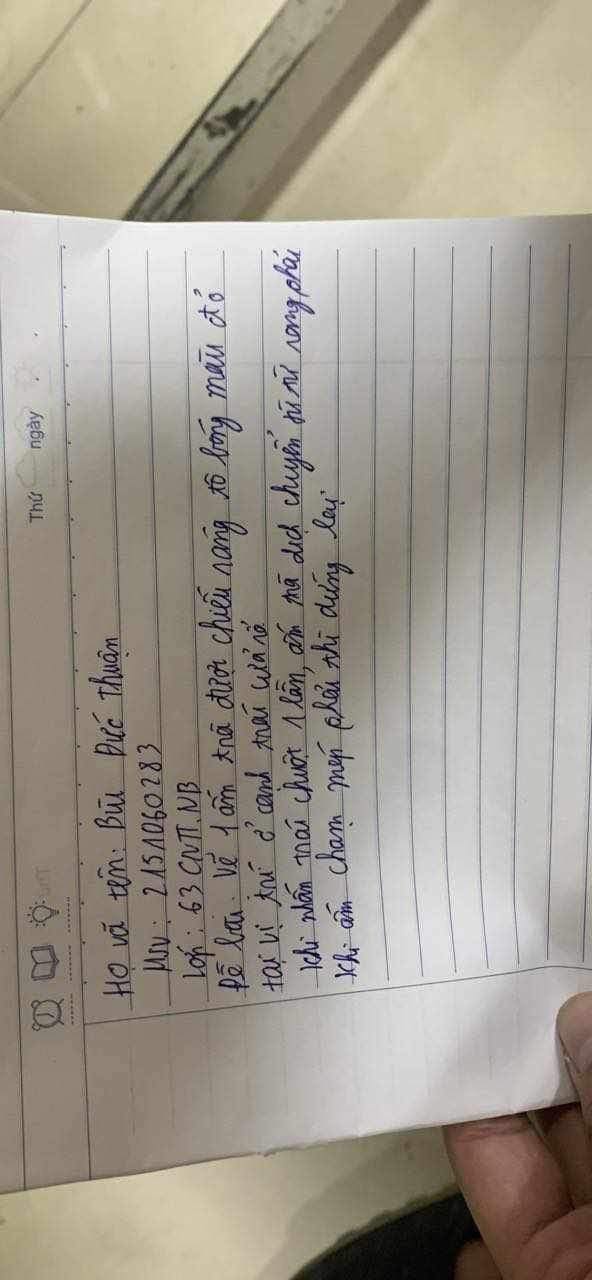 Thứ ngày
Họ và tên: Bùi Đức Thuận
Msv: 2151060283
Lớp: 63 CNTT.NB
Đề bài. Vẽ 1 ấm trà được chiếu sáng tô bóng màu đỏ
tại vị trí ở cạnh trái cửa sổ
Khi nhấn trái chuột 1 lần, ấm trà dịch chuyển từ từ sang phải
Khi ấm chạm mép phải thì dừng lại